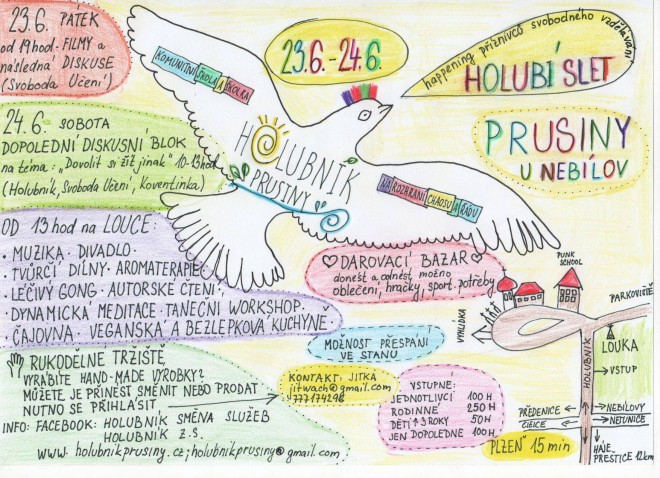 23.6. PÁTEK
od 19 hod - FILMY a
následná DISKUSE
(Svoboda Učení)
24.6. SOBOTA
DOPOLEDNÍ DISKUSNÍ BLOK
na téma: „Dovolit si žít jinak" 10-13hod
(Holubník, Svoboda Učení, Koventinka)
OD 13 hod na LOUCE:
· MUZIKA · DIVADLO ·
· TVŮRČÍ DÍLNY · AROMATERAPIE ·
· LÉČIVÝ GONG · AUTORSKÉ ČTENÍ ·
· DYNAMICKÁ MEDITACE · TANEČNÍ WORKSHOP ·
ČAJOVNA · VEGANSKÁ A BEZLEPKOVÁ KUCHYNĚ ·
RUKODĚLNÉ TRŽIŠTĚ
VYRÁBÍTE HAND-MADE VÝROBKY?
MŮŽETE JE PŘINÉST SMĚNIT NEBO PRODAT
NUTNO SE PŘIHLÁSIT
INFO: FACEBOOK: HOLUBNÍK SMĚNA SLUŽEB
HOLUBNÍK Z.S.
www. holubnikprusiny.cz; holubnikprusiny@gmail.com
KOMUNITNÍ ŠKOLA A ŠKOLKA
HOLUBNÍK
PRUSINY
NA ROZHRANÍ CHAOSU A ŘÁDU
23.6.-24.6.
happening příznivců svobodného vzdělávání
HOLUBÍ SLET
PRUSINY
U NEBÍLOV
DAROVACÍ BAZAR
donést a odnést možno
oblečení, hračky, sport. potřeby
MOŽNOST PŘESPÁNÍ
VE STANU
KONTAKT: JITKA
jitwach@gmail.com
777174298
VSTUPNÉ:
JEDNOTLIVCI 100 H
RODINNÉ 250 H
DĚTI ↑ 3 ROKY 50 H
JEN DOPOLEDNE 100 H
PUNK
SCHOOL
PARKOVIŠTĚ
VYHLÍDKA
LOUKA
VSTUP
HOLUBNÍK
PŘEDENICE
NEBÍLOVY
ČIČICE
NETUNICE
PLZEŇ 15 min
HÁJE
PŘEŠTICE 12km